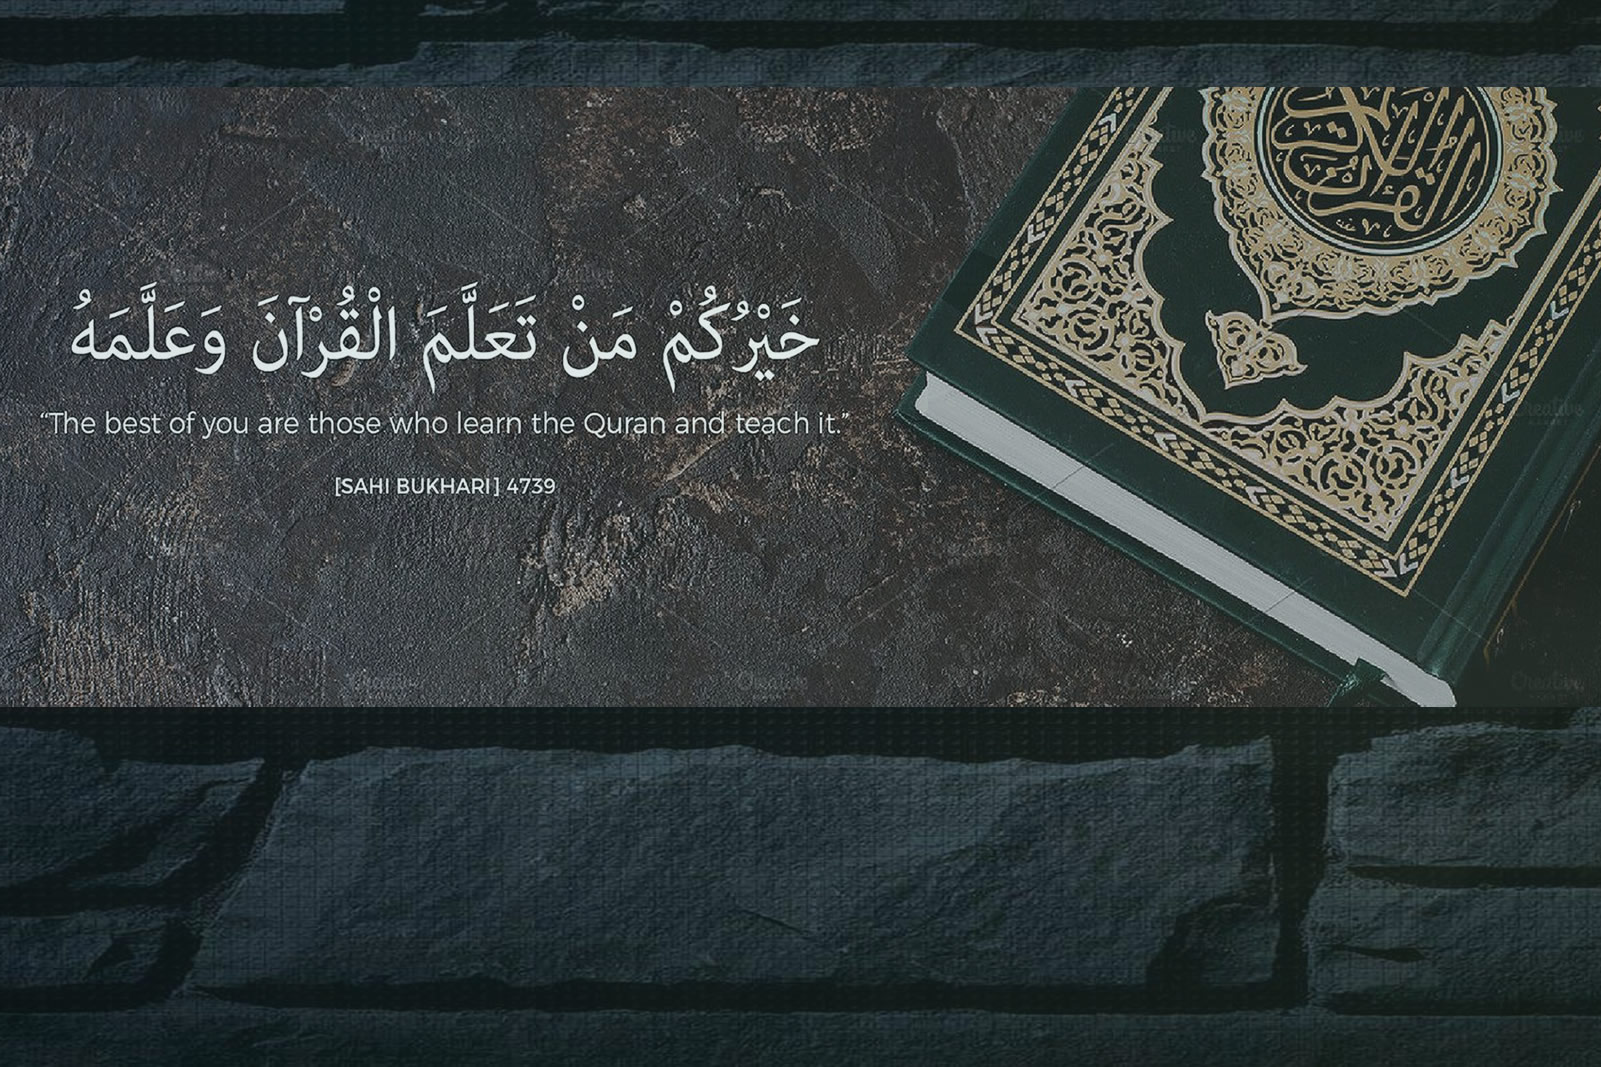 القرآن الكريم
خَيْرُكُمْ مَنْ تَعَلَّمَ الْقُرْآنَ وَعَلَّمَهُ
“The best of you are those who learn the Quran and teach it.”
[SAHI BUKHARI] 4739